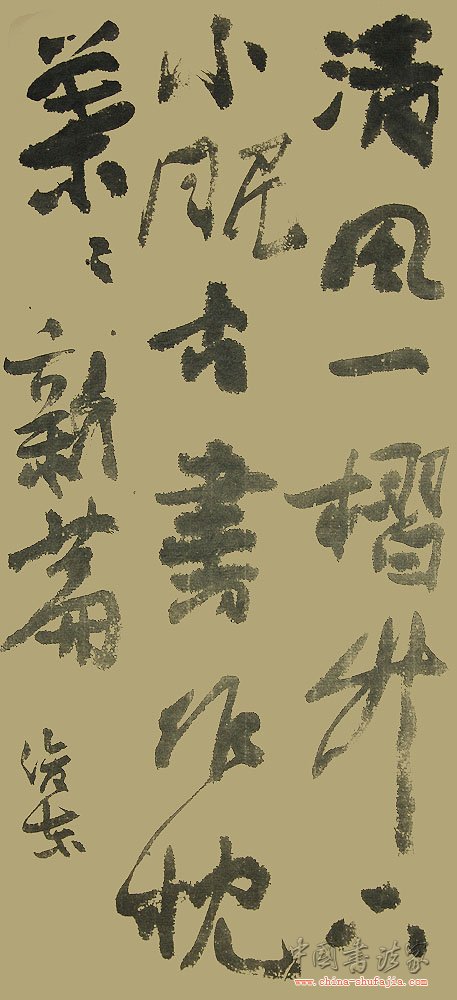 清風一榻竹下
小眠古書作枕
葉〻新篇
中國書法家
www.china-shufajia.com